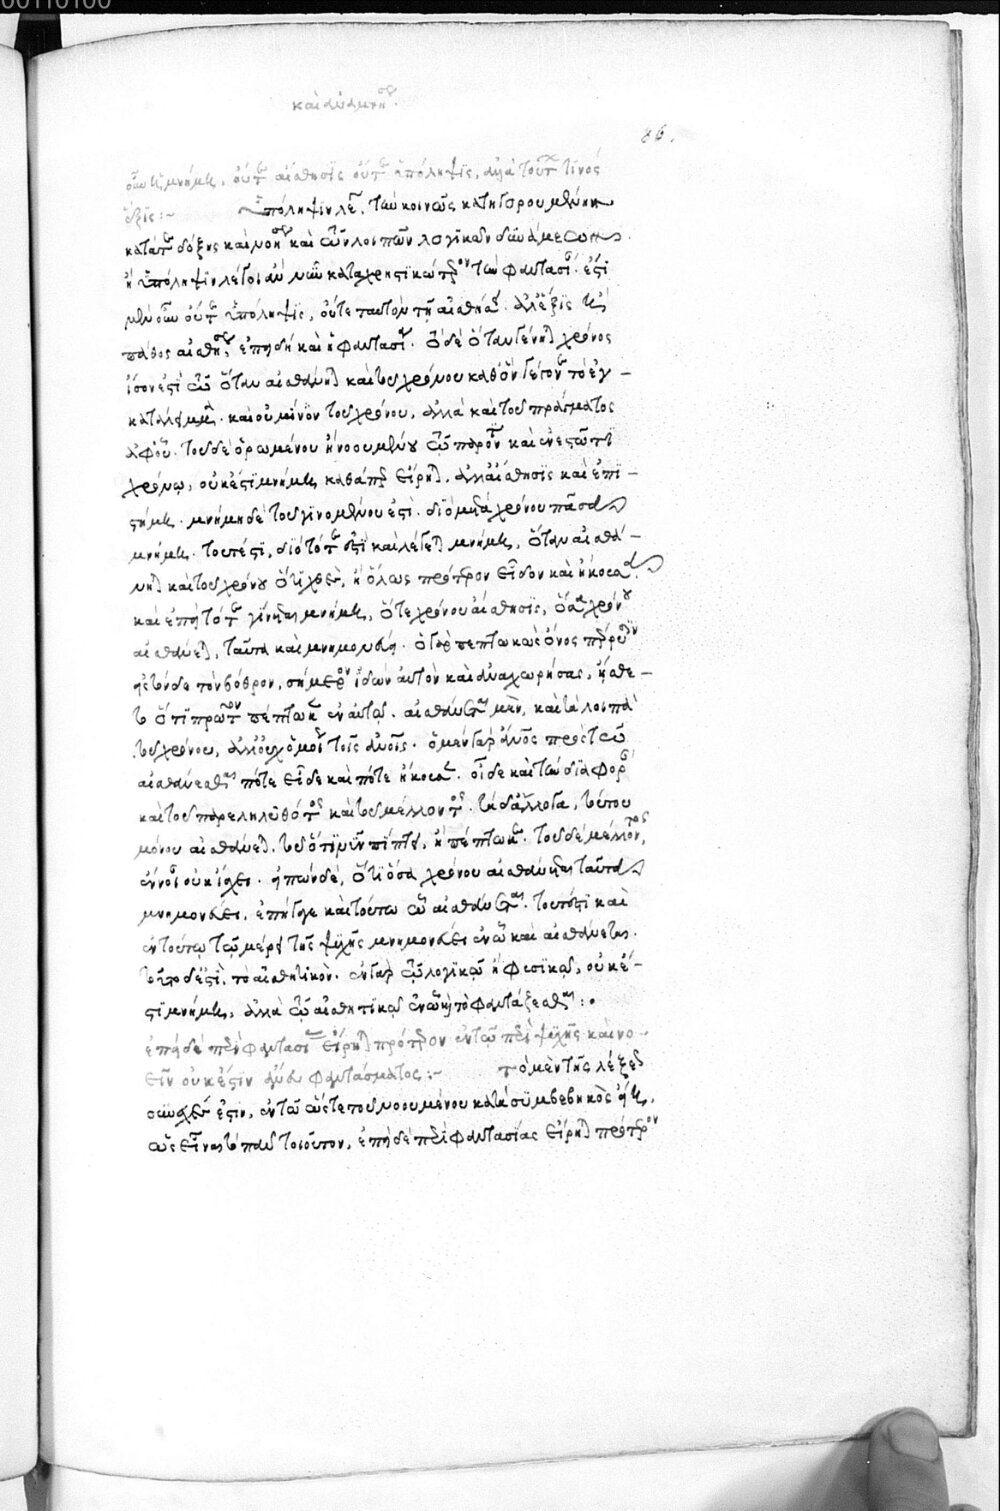 00110100
καὶ ἀναμνήσεως
86.
οὖν ἡ μνήμη, οὔτε αἴσθησις οὔτε ὑπόληψις, ἀλλὰ τούτων τινός
ἕξις :~ Ὑπόληψιν λέγει, τὴν κοινῶς κατηγορουμένην
κατά τε δόξης καὶ καὶ τῶν λοιπῶν λογικῶν δυνάμεων.
ἢ ὑπόληψιν λέγοι ἂν νῦν καταχρηστικώτερον τὴν φαντασίαν. ἔστι
μὲν οὖν οὔτε ὑπόληψις, οὔτε ταυτὸν τῇ αἰσθήσει. ἀλλ' ἕξις ἢ
πάθος αἰσθήσεως, ἐπειδὴ καὶ ἡ φαντασία. ὁ δὲ ὅταν γένηται χρόνος
ἴσον ἐστὶ τῷ ὅταν αἰσθάνηται καὶ τοῦ χρόνου καθ' ὃν γέγονε τὸ ἐγ-
κατάλειμμα. καὶ οὐ μόνον τοῦ χρόνου, ἀλλὰ καὶ τοῦ πράγματος
ἀφ' οὗ. τοῦ δὲ ὁρωμένου ἢ νοουμένου τῷ παρόντι καὶ ἐνεστῶτι
χρόνῳ, οὐκ ἔστι μνήμη καθάπερ εἴρηται. ἀλλ' αἴσθησις καὶ ἐπι-
στήμη. μνήμη δὲ τοῦ γινομένου ἐστί. διὸ μετὰ χρόνου πᾶσα
μνήμη. τουτέστι, διὸ τότε ἐστὶ καὶ λέγεται μνήμη, ὅταν αἰσθά-
νηται καὶ τοῦ χρόνου ὅτι χθὲς, ἢ ὅλως πρότερον εἶδον καὶ ἤκουσα.
καὶ ἐπεὶ τότε γίνεται μνήμη, ὅτε χρόνου αἴσθησις, ὅσα χρόνου
αἰσθάνεται, ταῦτα καὶ μνημονεύει. ὁ γὰρ πεπτωκὼς ὄνος
εἰς τόνδε τὸν βόθρον, σήμερον ἰδὼν αὐτὸν καὶ ἀναχωρήσας, ᾔσθε-
το ὅτι πρῶτον πέπτωκεν ἐν αὐτῷ. αἰσθάνεται μὲν, καὶ τὰ λοιπὰ
τοῦ χρόνου, ἀλλ' οὐχ ὁμοίως τοῖς ἀνοις. ὁ μὲν γὰρ ανος πρὸς τῷ
αἰσθάνεσθαι πότε εἶδε καὶ πότε ἤκουσεν. οἶδε καὶ τὴν διαφορὰν
καὶ τοῦ παρεληλυθότος καὶ τοῦ μέλλοντος. τὰ δ' ἄλογα, τούτου
μόνου αἰσθάνεται. τοῦ ὅτι μὴν πίπτει, ἢ πέπτωκε. τοῦ δὲ μέλλοντος,
ἔννοιαν οὐκ ἴσχει. εἰπὼν δὲ, ὅτι ὅσα χρόνου αἰσθάνεται ταῦτα
μνημονεύει, ἐπήγαγε καὶ τούτῳ ᾧ αἰσθάνεται. τουτέστι καὶ
ἐν τούτῳ τῷ μέρει τῆς ψυχῆς μνημονεύει ἐν ᾧ καὶ αἰσθάνεται.
τοῦτο δέ ἐστι, τὸ αἰσθητικόν. ἐν γὰρ τῷ λογικῷ ἢ φυσικῷ, οὐκ ἔ-
στι μνήμη, ἀλλὰ τῷ αἰσθητικῷ ἐν ᾧ καὶ τὸ φαντάζεσθαι :.
ἐπεὶ δὲ περὶ φαντασίας εἴρηται πρότερον ἐν τῷ περὶ ψυχῆς καὶ νο-
εῖν οὐκ ἔστιν ἄνευ φαντάσματος :~ τὸ μὲν τῆς λέξεως
συνεχές ἐστιν, ἐν τῷ ὥστε τοῦ νοουμένου κατὰ συμβεβηκὸς εἴη,
ὡς εἶναι τὸ πᾶν τοιοῦτον, ἐπεὶ δὲ περὶ φαντασίας εἴρηται πρότερον